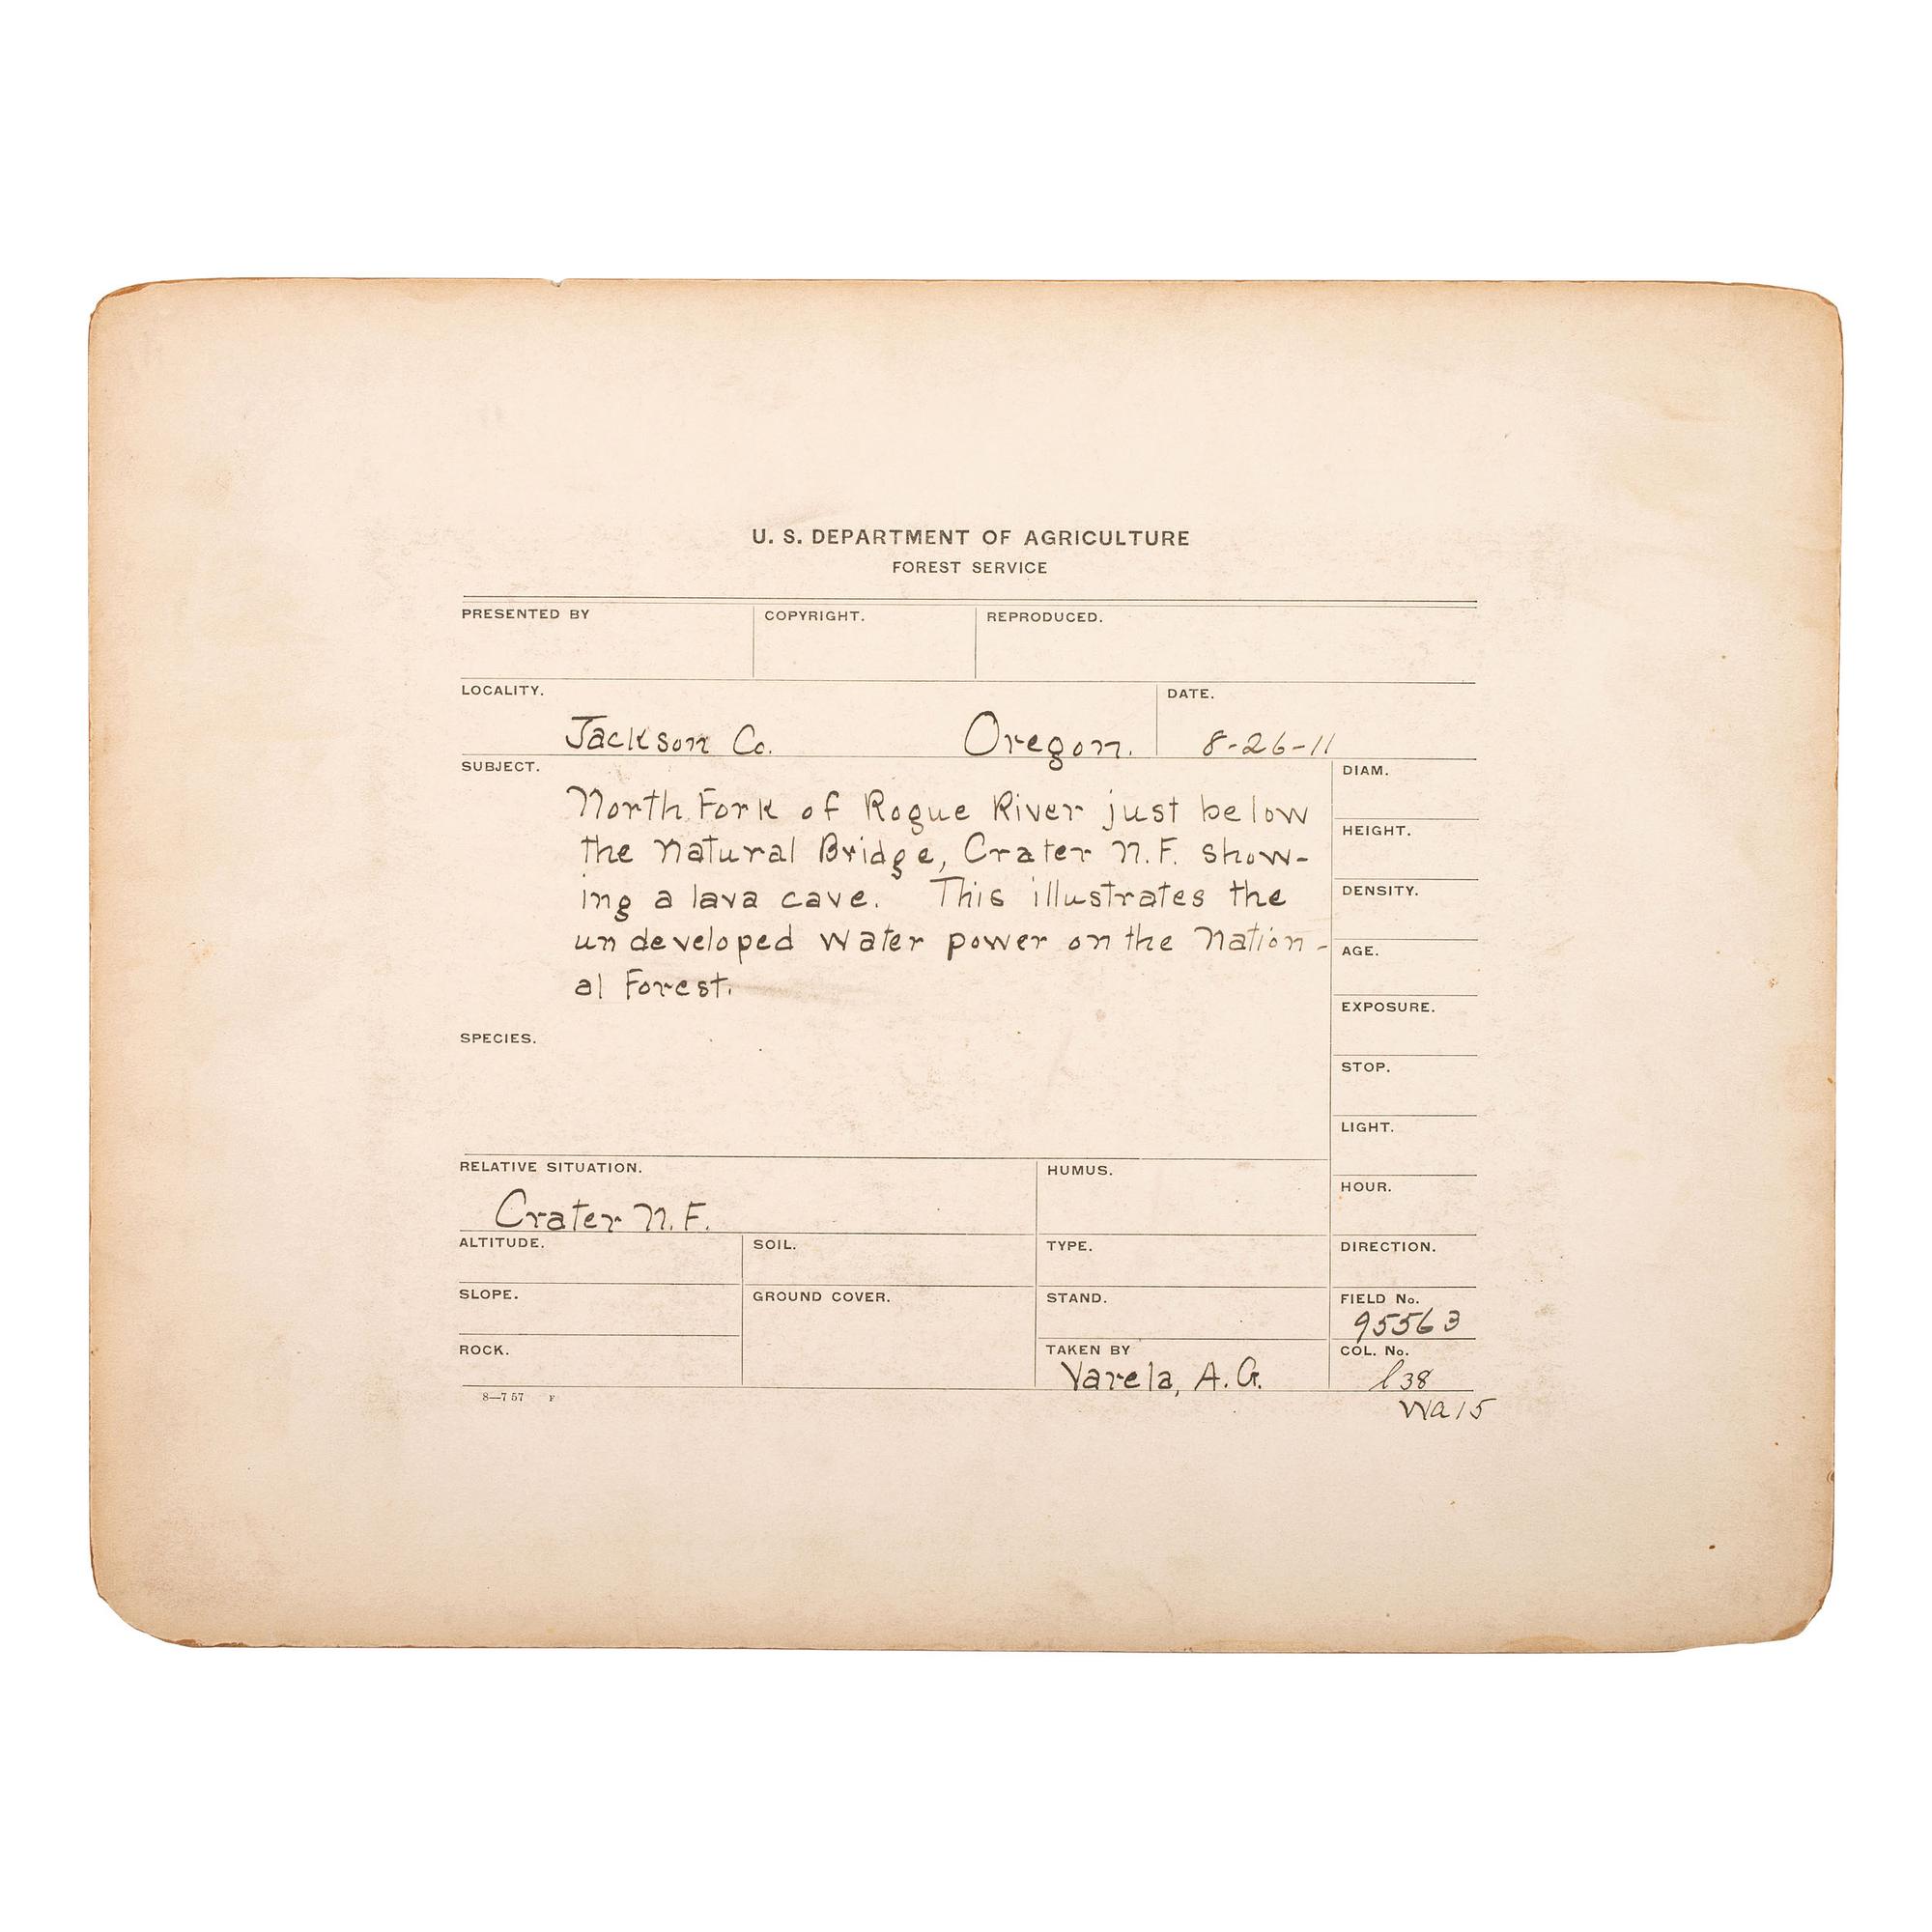 U. S. DEPARTMENT OF AGRICULTURE
FOREST SERVICE
PRESENTED BY
COPYRIGHT.
REPRODUCED.
LOCALITY.
Jackson Co. Oregon.
DATE.
8-26-11
SUBJECT.
North Fork of Rogue River just below
the Natural Bridge, Crater N.F. show-
ing a lava cave. This illustrates the
undeveloped water power on the Nation-
al Forest.
DIAM.
HEIGHT.
DENSITY.
AGE.
EXPOSURE.
STOP.
LIGHT.
HOUR.
DIRECTION.
SPECIES.
RELATIVE SITUATION.
Crater N.F.
HUMUS.
ALTITUDE.
SOIL.
TYPE.
SLOPE.
GROUND COVER.
STAND.
FIELD No.
95563
ROCK.
TAKEN BY
Varela, A.G.
COL. No.
l38
Wa15
8—757 F